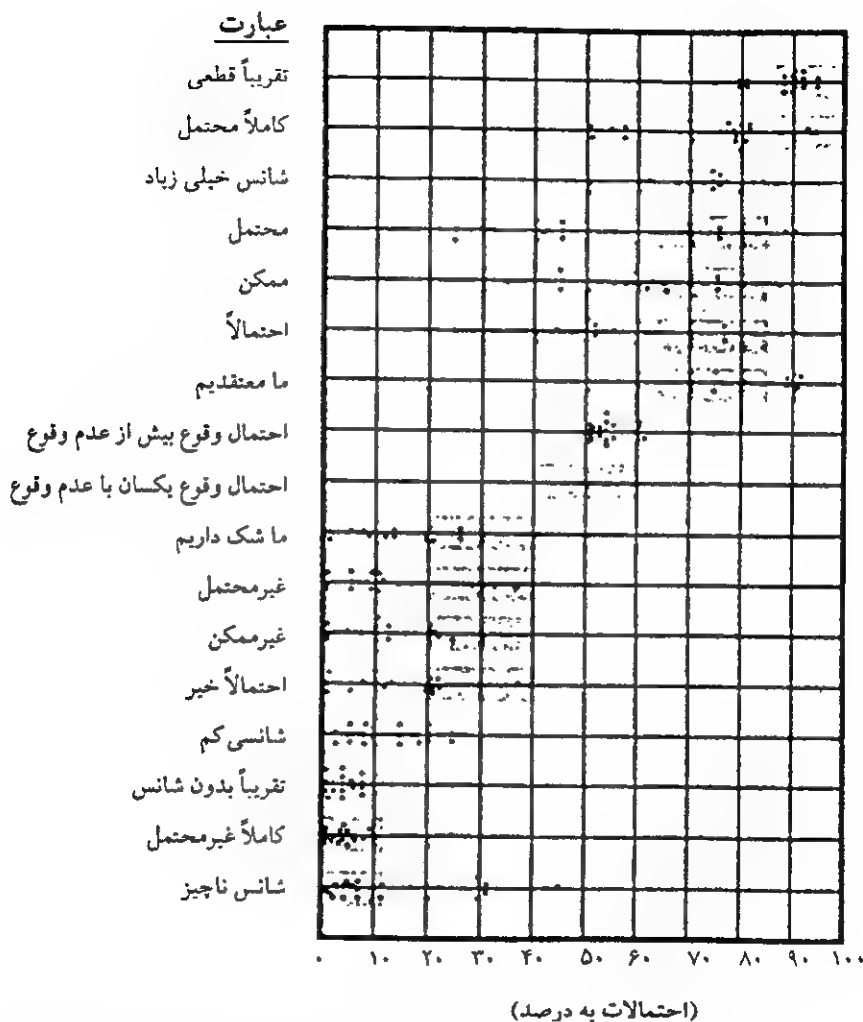 عبارت
تقریباً قطعی
کاملاً محتمل
شانس خیلی زیاد
محتمل
ممکن
احتمالاً
ما معتقدیم
احتمال وقوع بیش از عدم وقوع
احتمال وقوع یکسان با عدم وقوع
ما شک داریم
غیرمحتمل
غیرممکن
احتمالاً خیر
شانسی کم
تقریباً بدون شانس
کاملاً غیرمحتمل
شانس ناچیز
۰ ۱۰ ۲۰ ۳۰ ۴۰ ۵۰ ۶۰ ۷۰ ۸۰ ۹۰ ۱۰۰
(احتمالات به درصد)